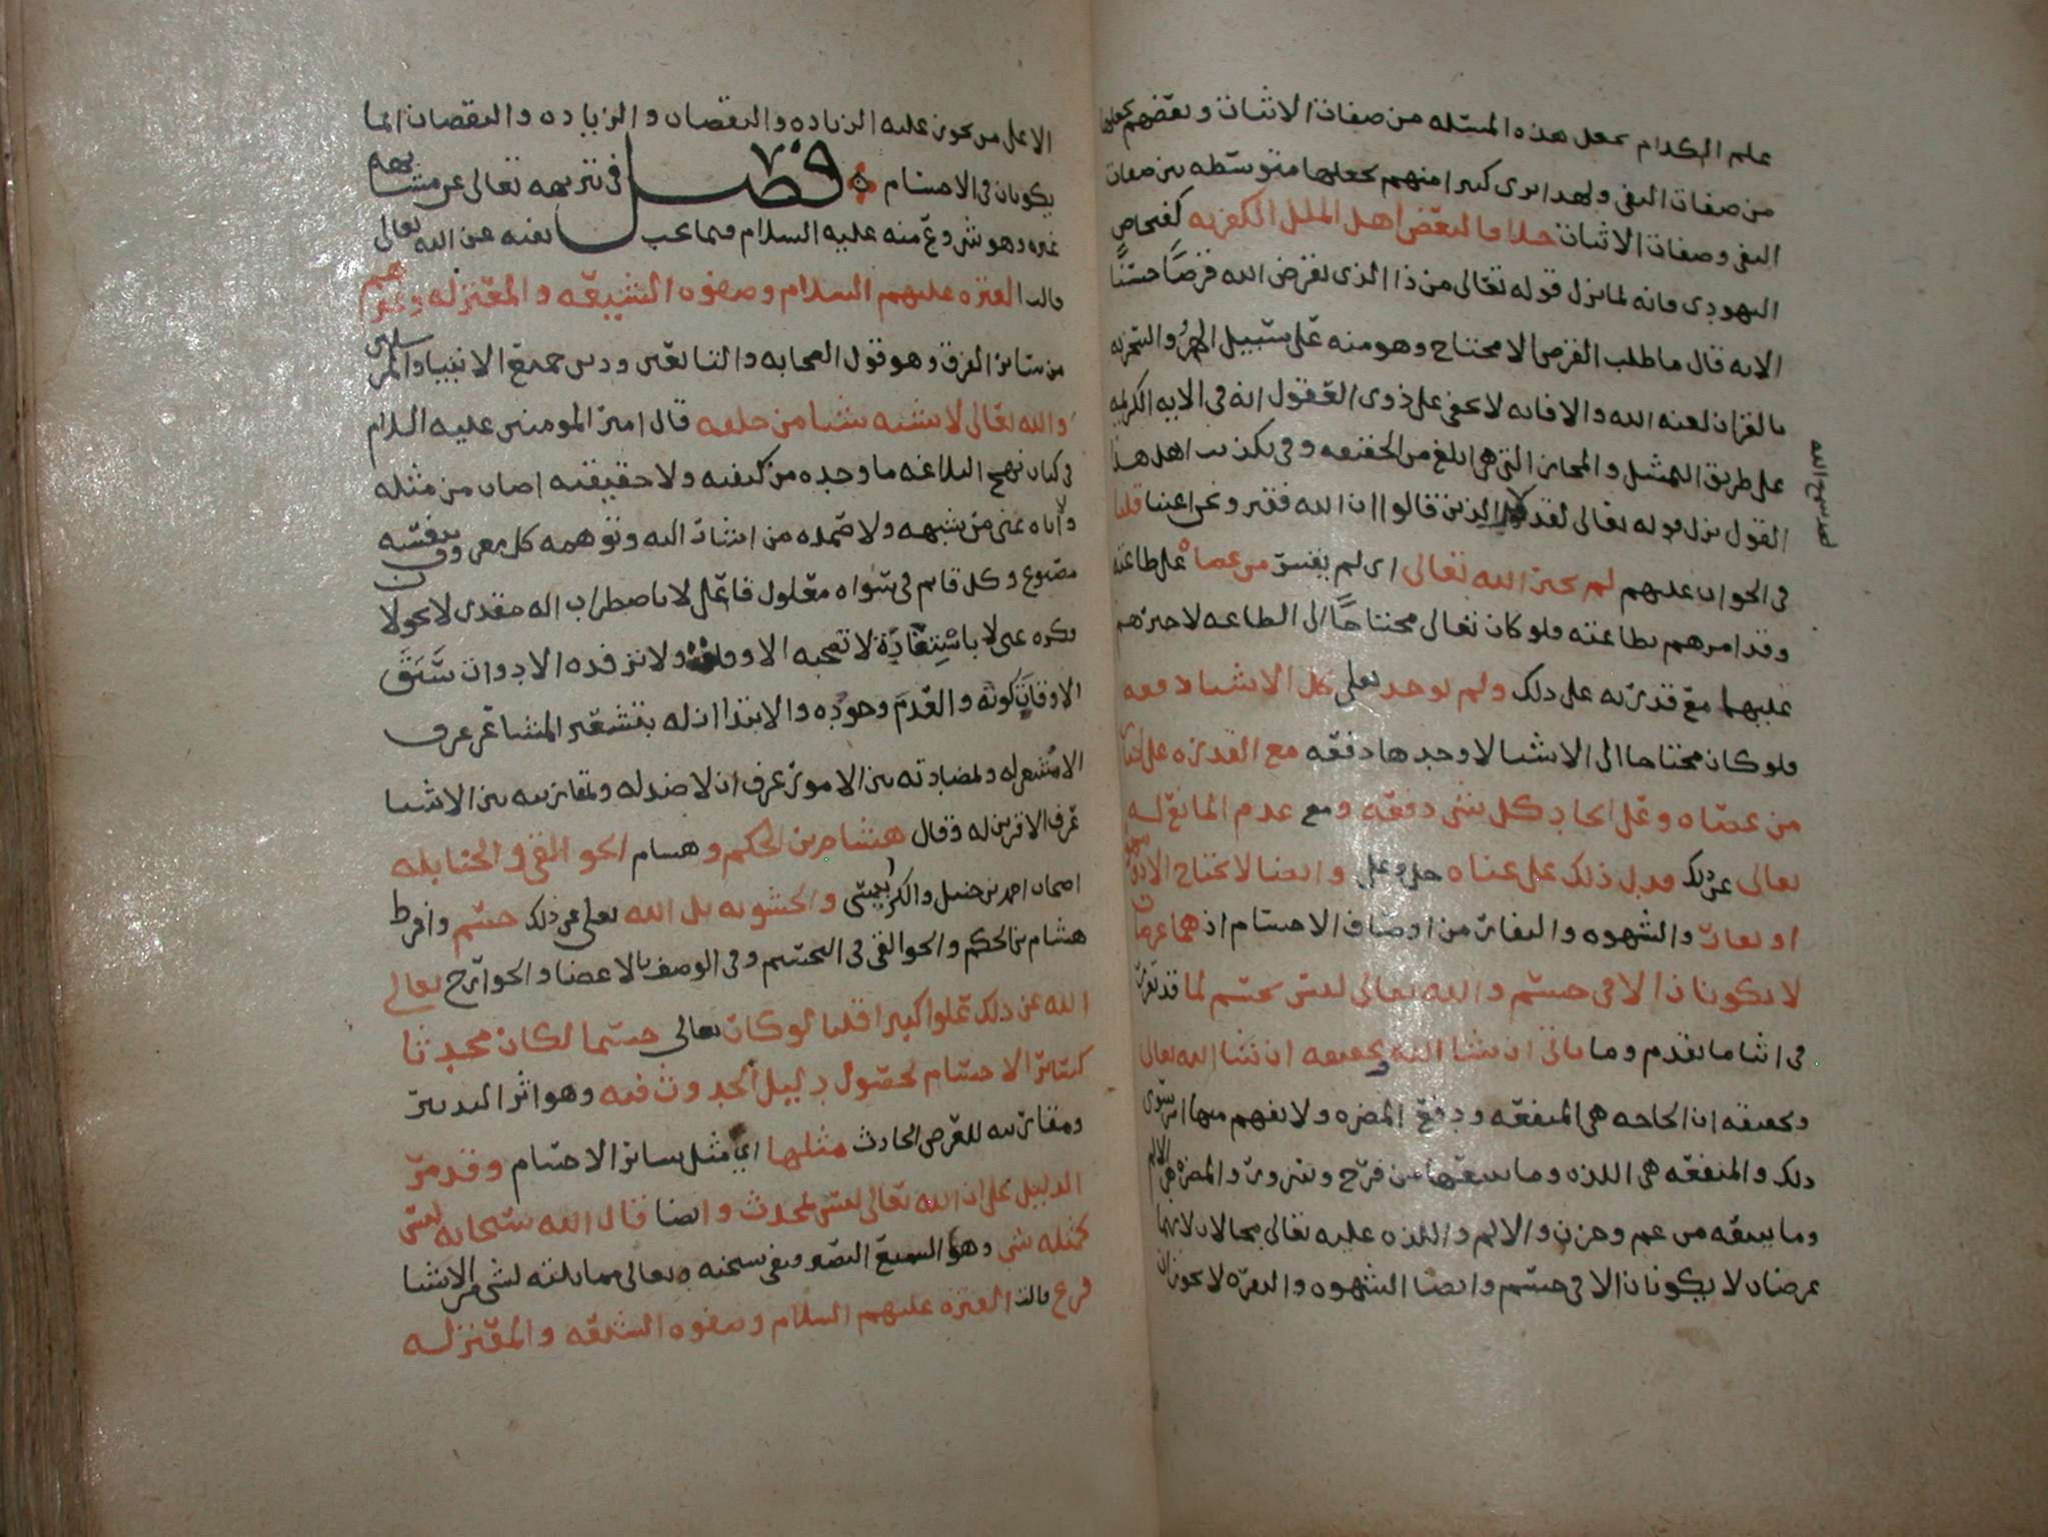 علم الكلام يجعل هذه المسئله من صفات الاثبات وبعضهم يجعلها
من صفات النفى ولهذا ترى كثيرا منهم يجعلها متوسطه بين صفات
النفى وصفات الاثبات خلافا لبعض اهل الملل الكفريه كفنحاص
اليهودى فانه لما نزل قوله تعالى من ذا الذى يقرض الله قرضًا حسنًا
الايه قال ما طلب القرض الا محتاج وهو منه على سبيل الهزؤ والسخريه
بالقران لعنه الله والا فانه لا يخفى على ذوى العقول انه فى الايه الكريمه
على طريق التمثيل والمجاز التى هى ابلغ من الحقيقه وفى تكذيب اهل هذا
القول نزل قوله تعالى لقد كفر الذين قالوا ان الله فقير ونحن اغنيا قلنا
لقد سمع الله
فى الجواب عليهم لم يجبر الله تعالى اى لم يقسر من عصاه على طاعته
وقد امرهم بطاعته فلو كان تعالى محتاجًا الى الطاعه لاجبرهم
عليها مع قدرته على ذلك ولم يوجد تعالى كل الاشيا دفعه
فلو كان محتاجا الى الاشيا لاوجدها دفعه مع القدره على اجبار
من عصاه وعلى ايجاد كل شى دفعه ومع عدم المانع له
تعالى عن ذلك فدل ذلك على غناه جل وعلى وايضا لا يحتاج الا ذو شهوة
او نفار والشهوه والنفار من اوصاف الاجسام اذ هما عرضان
لا يكونان الا فى جسم والله تعالى ليس بجسم لما قد تقرر
فى اثنا ما تقدم وما ياتى ان شا الله وتحقيقه ان شا الله تعالى
وتحقيقه ان الحاجه هى المنفعه ودفع المضره ولا يفهم منها امر سوى
ذلك والمنفعه هى اللذه وما يتبعها من فرح وسرور والمضره هى الالم
وما يتبعه من غم وحزن والالم واللذه عليه تعالى محالان لانهما
عرضان لا يكونان الا فى جسم وايضا الشهوه والنفره لا يجوزان
الا على من يجوز عليه الزياده والنقصان والزياده والنقصان انما
يكونان فى الاجسام فصل فى تنزيهه تعالى عن مشابهه
غيره وهو شروع منه عليه السلام فيما يجب نفيه عن الله تعالى
قالت العتره عليهم السلام وصفوه الشيعه والمعتزله وغيرهم
من سائر الفرق وهو قول الصحابه والتابعين ودين جميع الانبيا والمرسلين
والله تعالى لا يشبه شيا من خلقه قال امير المومنين عليه السلام
فى كتاب نهج البلاغه ما وحده من كيفه ولا حقيقته اصاب من مثله
ولا اياه عنى من شبهه ولا صمده من اشار اليه وتوهمه كل معروف بنفسه
مصنوع وكل قايم فى سواه معلول فاعل لا باضطراب اله مقدر لا بجولا
فكره غنى لا باستفادة لا تصحبه الاوقات ولا ترفده الادوات سَبَقَ
الاوقات كونه والعدم وجوده والابتدا ازله بتشعير المشاعر عرف
الا مشعر له ولمضادته بين الامور عرف ان لا ضد له ولمقارنته بين الاشيا
عرف الا قرين له وقال هشام بن الحكم وهشام الجوالقى والحنابله
اصحاب احمد بن حنبل والكرابيسى والحشويه بل الله تعالى عن ذلك جسم وافرط
هشام بن الحكم والجوالقى فى التجسيم وفى الوصف بالاعضا والجوارح تعالى
الله عن ذلك علوا كبيرا قلنا لو كان تعالى جسما لكان محدثا
كسائر الاجسام لحصول دليل الحدوث فيه وهو اثر التدبير
ومقارنته للعرض الحادث مثلها اى مثل سائر الاجسام وقد مر
الدليل على ان الله تعالى ليس بمحدث وايضا قال الله سبحانه ليس
كمثله شى وهو السميع البصير ونفى سبحنه وتعالى مماثلته لشى من الاشيا
فرع قالت العتره عليهم السلام وصفوه الشيعه والمعتزله